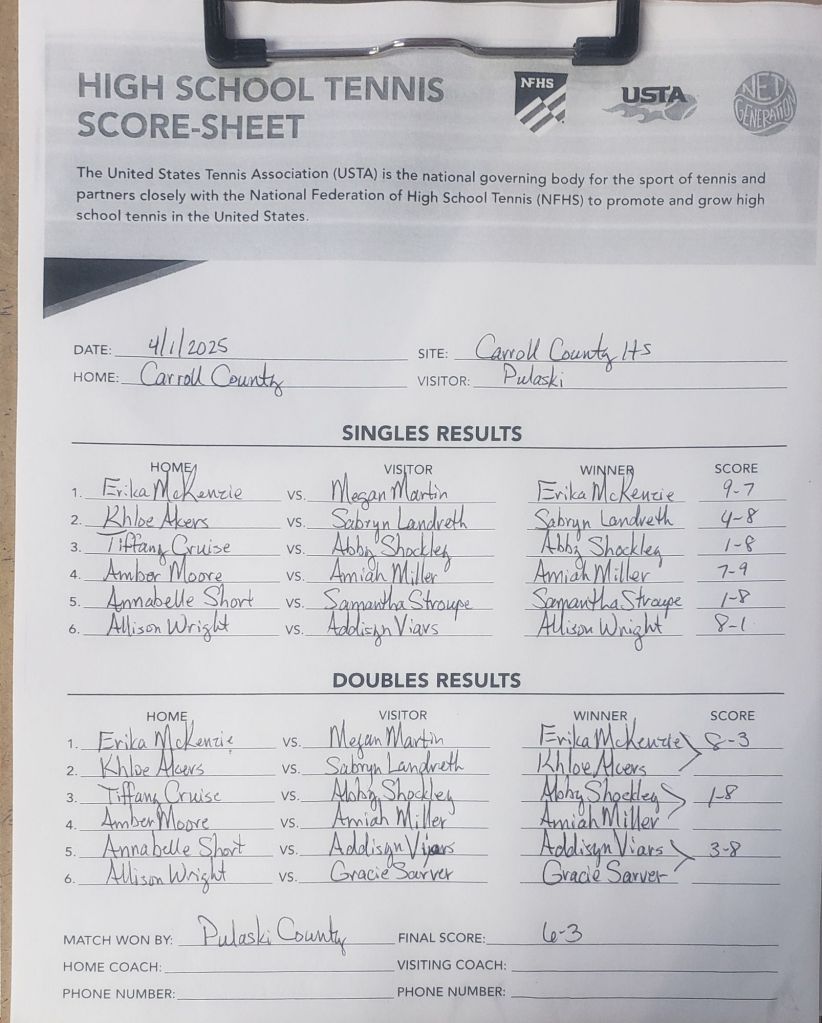 HIGH SCHOOL TENNIS
SCORE-SHEET
NFHS
USTA
NET
GENERATION
The United States Tennis Association (USTA) is the national governing body for the sport of tennis and
partners closely with the National Federation of High School Tennis (NFHS) to promote and grow high
school tennis in the United States.
DATE: 4/1/2025 SITE: Carroll County HS
HOME: Carroll County VISITOR: Pulaski
SINGLES RESULTS
HOME VISITOR WINNER SCORE
1. Erika McKenzie vs. Megan Martin Erika McKenzie 9-7
2. Khloe Akers vs. Sabryn Landreth Sabryn Landreth 4-8
3. Tiffany Cruise vs. Abby Shockley Abby Shockley 1-8
4. Amber Moore vs. Amiah Miller Amiah Miller 7-9
5. Annabelle Short vs. Samantha Stroupe Samantha Stroupe 1-8
6. Allison Wright vs. Addisyn Viars Allison Wright 8-1
DOUBLES RESULTS
HOME VISITOR WINNER SCORE
1. Erika McKenzie vs. Megan Martin Erika McKenzie 8-3
2. Khloe Akers vs. Sabryn Landreth Khloe Akers
3. Tiffany Cruise vs. Abby Shockley Abby Shockley 1-8
4. Amber Moore vs. Amiah Miller Amiah Miller
5. Annabelle Short vs. Addisyn Viars Addisyn Viars 3-8
6. Allison Wright vs. Gracie Sarver Gracie Sarver
MATCH WON BY: Pulaski County FINAL SCORE: 6-3
HOME COACH: VISITING COACH:
PHONE NUMBER: PHONE NUMBER: